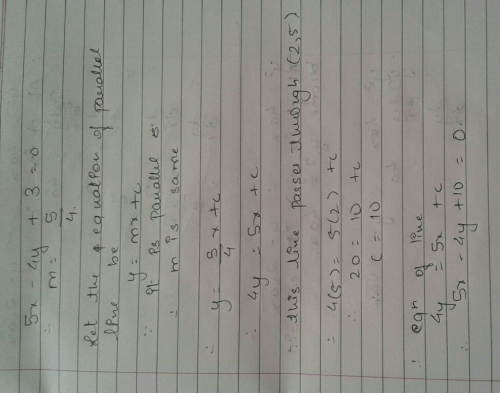 5x - 4y + 3 = 0
∴ m = 5/4
Let the equation of parallel
line be
y = mx + c
∵ it is parallel
∴ m is same
∴ y = 5/4 x + c
∴ 4y = 5x + c
∵ this line passes through (2,5)
∴ 4(5) = 5(2) + c
∴ 20 = 10 + c
∴ c = 10
∴ eqn of line
4y = 5x + c
∴ 5x - 4y + 10 = 0